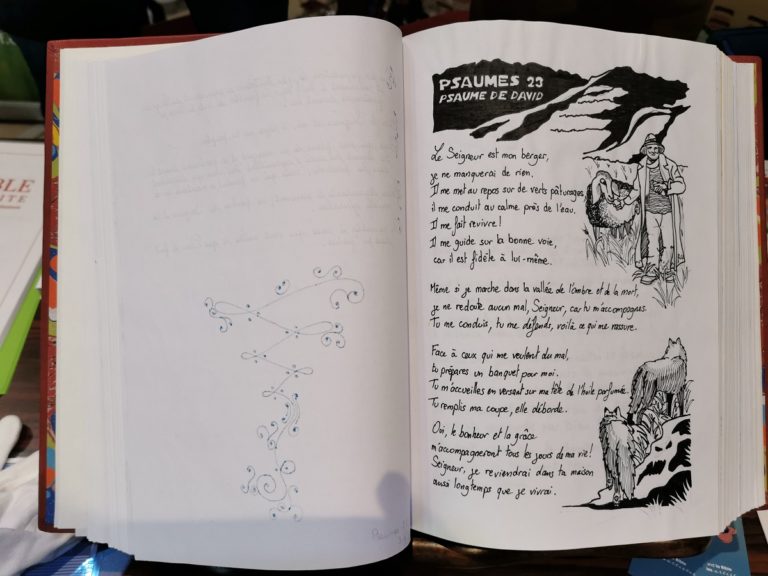 PSAUMES 23
PSAUME DE DAVID
Le Seigneur est mon berger,
je ne manquerai de rien.
Il me met au repos sur de verts pâturages,
il me conduit au calme près de l'eau.
Il me fait revivre!
Il me guide sur la bonne voie,
car il est fidèle à lui-même.
Même si je marche dans la vallée de l'ombre et de la mort,
je ne redoute aucun mal, Seigneur, car tu m'accompagnes.
Tu me conduis, tu me défends, voilà ce qui me rassure.
Face à ceux qui me veulent du mal,
tu prépares un banquet pour moi.
Tu m'accueilles en versant sur ma tête de l'huile parfumée.
Tu remplis ma coupe, elle déborde.
Oui, le bonheur et la grâce
m'accompagneront tous les jours de ma vie!
Seigneur, je reviendrai dans ta maison
aussi longtemps que je vivrai.